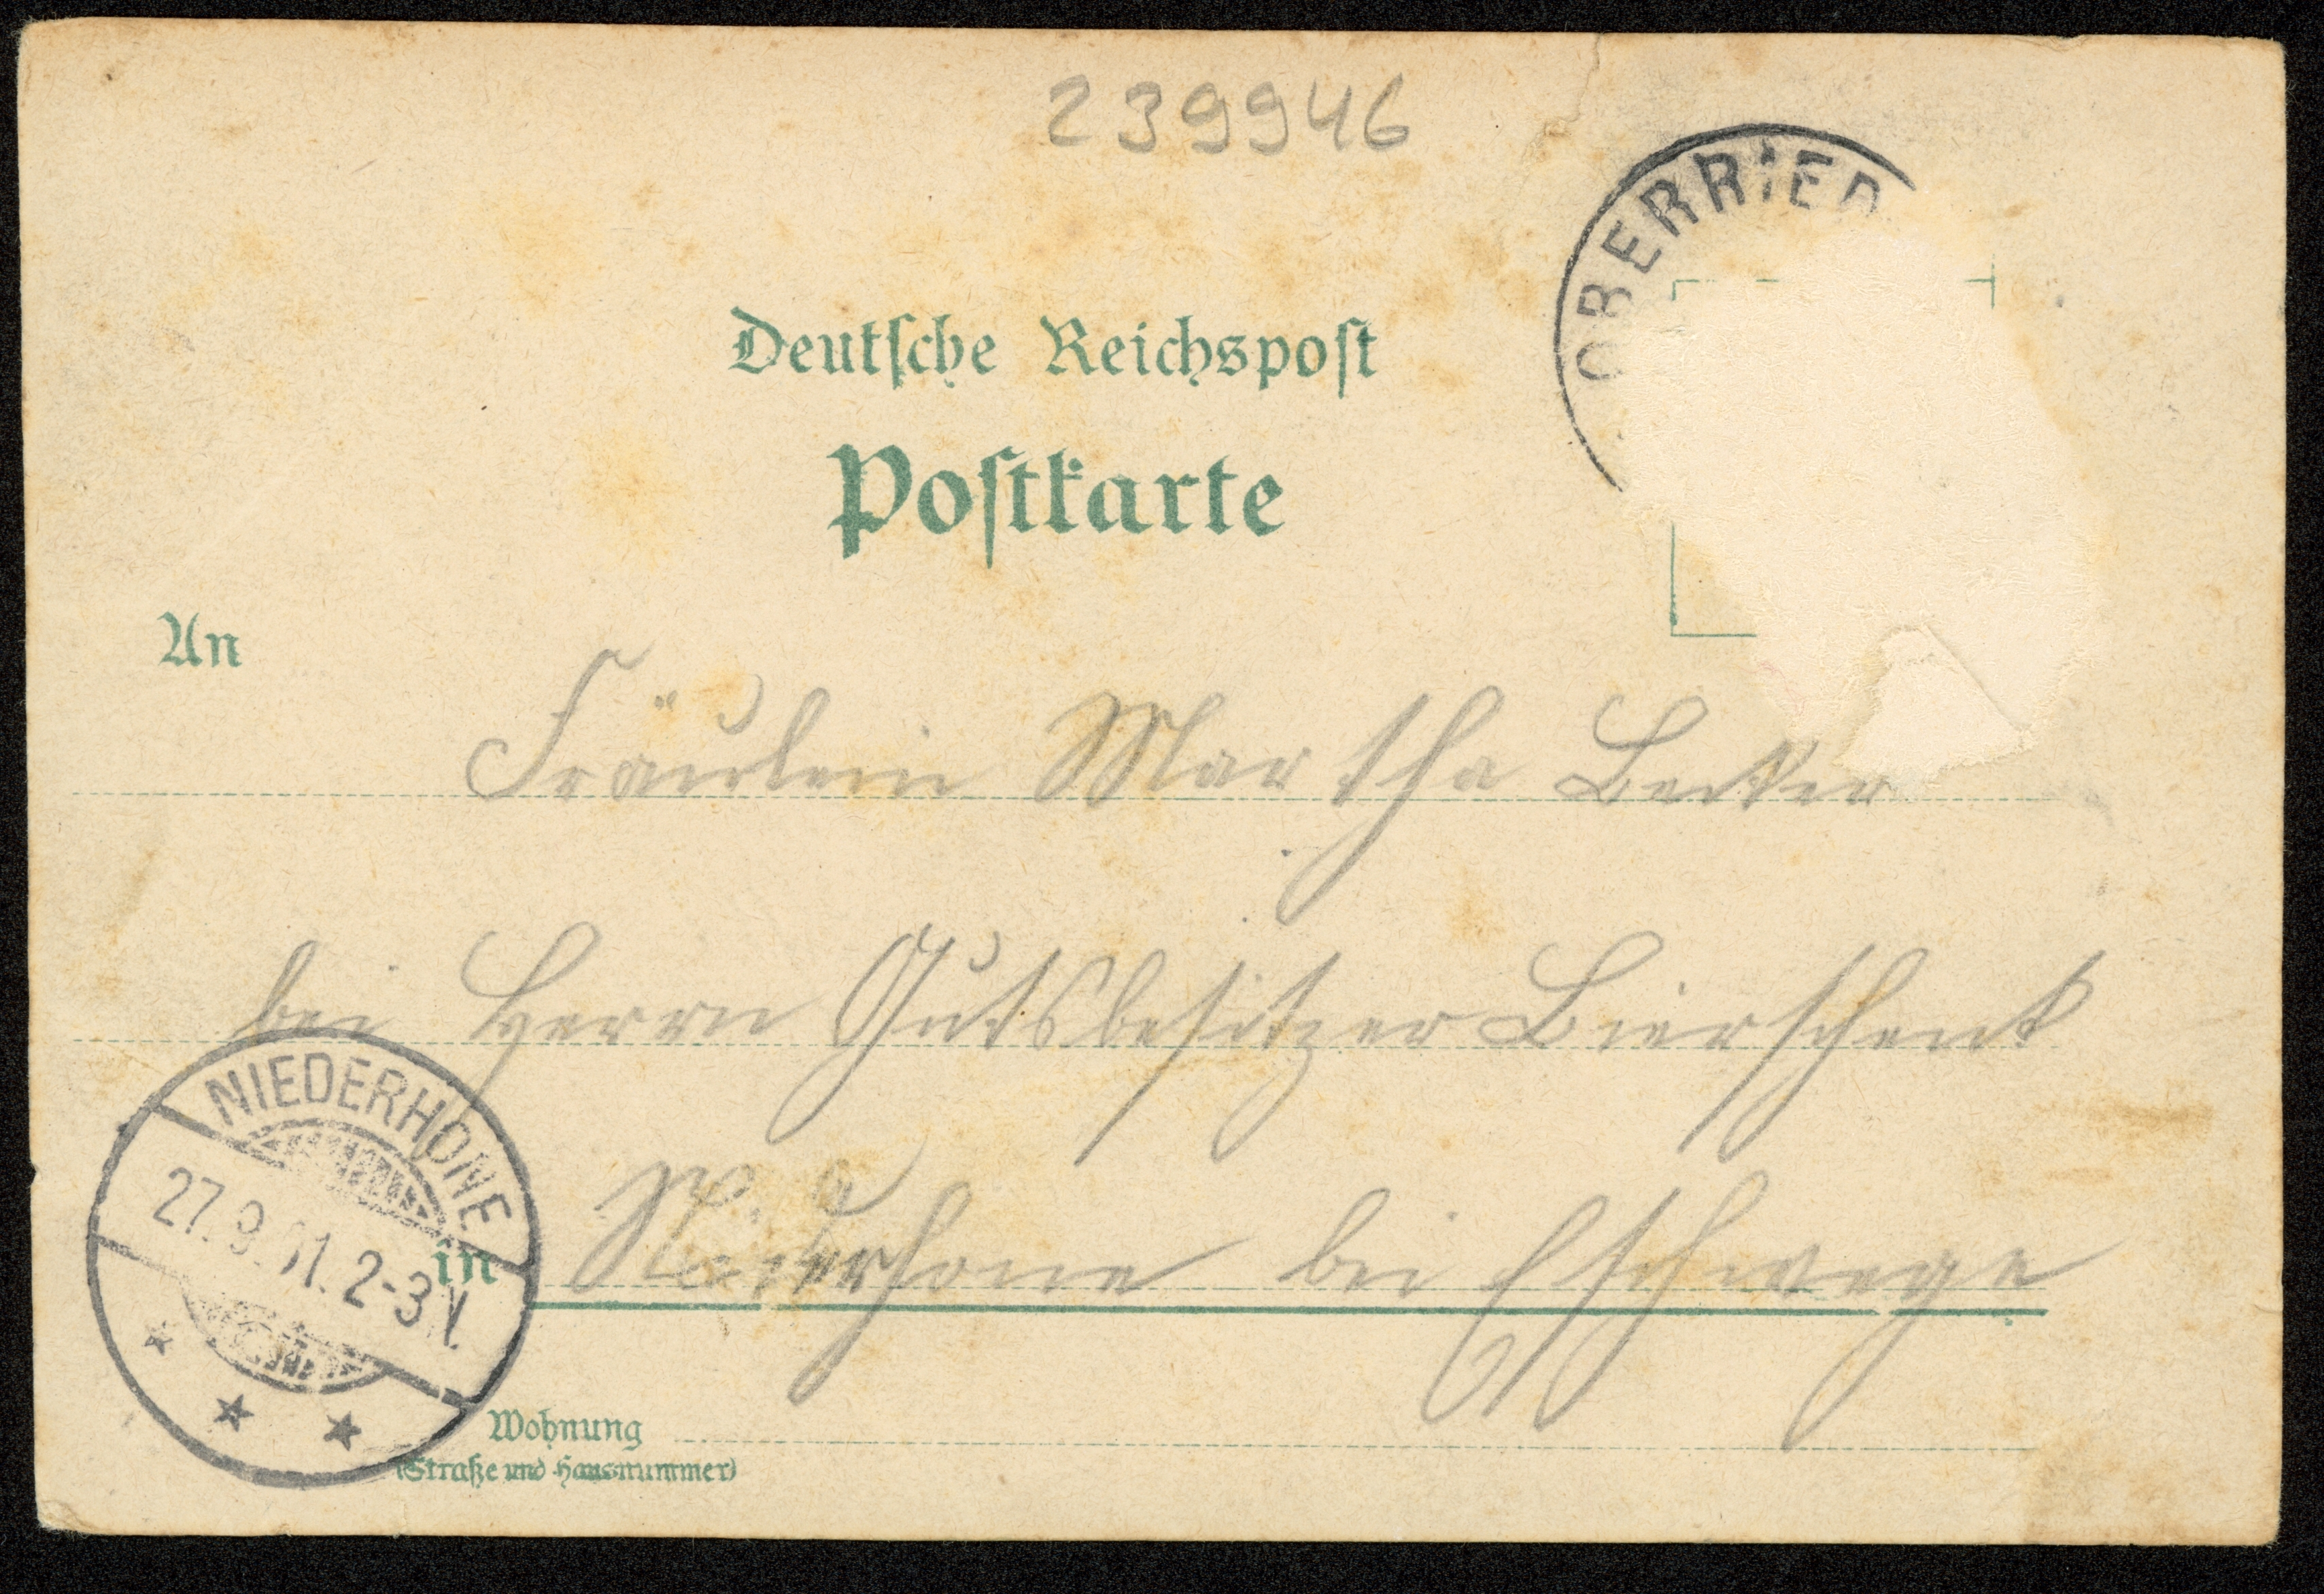 239946
OBERRIED
Deutsche Reichspost
Postkarte
An
Fräulein Martha Becker
bei Herrn Gutsbesitzer Bierschenk
in Niederhone bei Eschwege
NIEDERHONE
27.9.01. 2-3 N.
Wohnung
(Straße und Hausnummer)